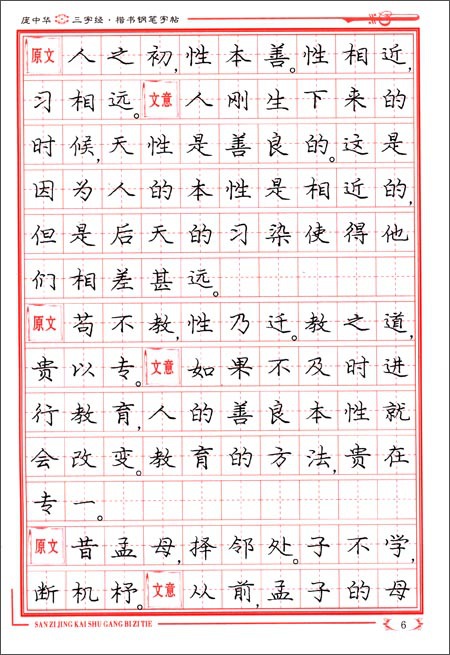 庞中华 三字经·楷书钢笔字帖
原文 人之初，性本善。性相近，
习相远。 文意 人刚生下来的
时候，天性是善良的。这是
因为人的本性是相近的，
但是后天的习染使得他
们相差甚远。
原文 苟不教，性乃迁。教之道，
贵以专。 文意 如果不及时进
行教育，人的善良本性就
会改变。教育的方法，贵在
专一。
原文 昔孟母，择邻处。子不学，
断机杼。 文意 从前，孟子的母
SAN ZI JING KAI SHU GANG BI ZI TIE
6